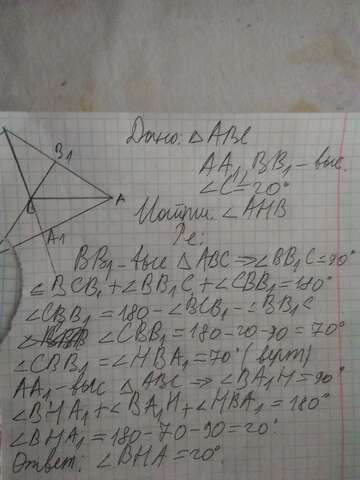 Дано: △ABC
AA₁, BB₁ - выс.
∠C=20°
Найти: ∠AHB
Ре:
BB₁ - выс △ABC ⇒ ∠BB₁C=90°
∠BCB₁+∠BB₁C+∠CBB₁=180°
∠CBB₁=180-∠BCB₁-∠BB₁C
∠CBB₁=180-20-90=70°
∠CBB₁=∠HBA₁=70° (верт)
AA₁ - выс △ABC ⇒ ∠BA₁H=90°
∠BHA₁+∠BA₁H+∠HBA₁=180°
∠BHA₁=180-70-90=20°
Ответ: ∠BHA=20°.
B₁
A
A1